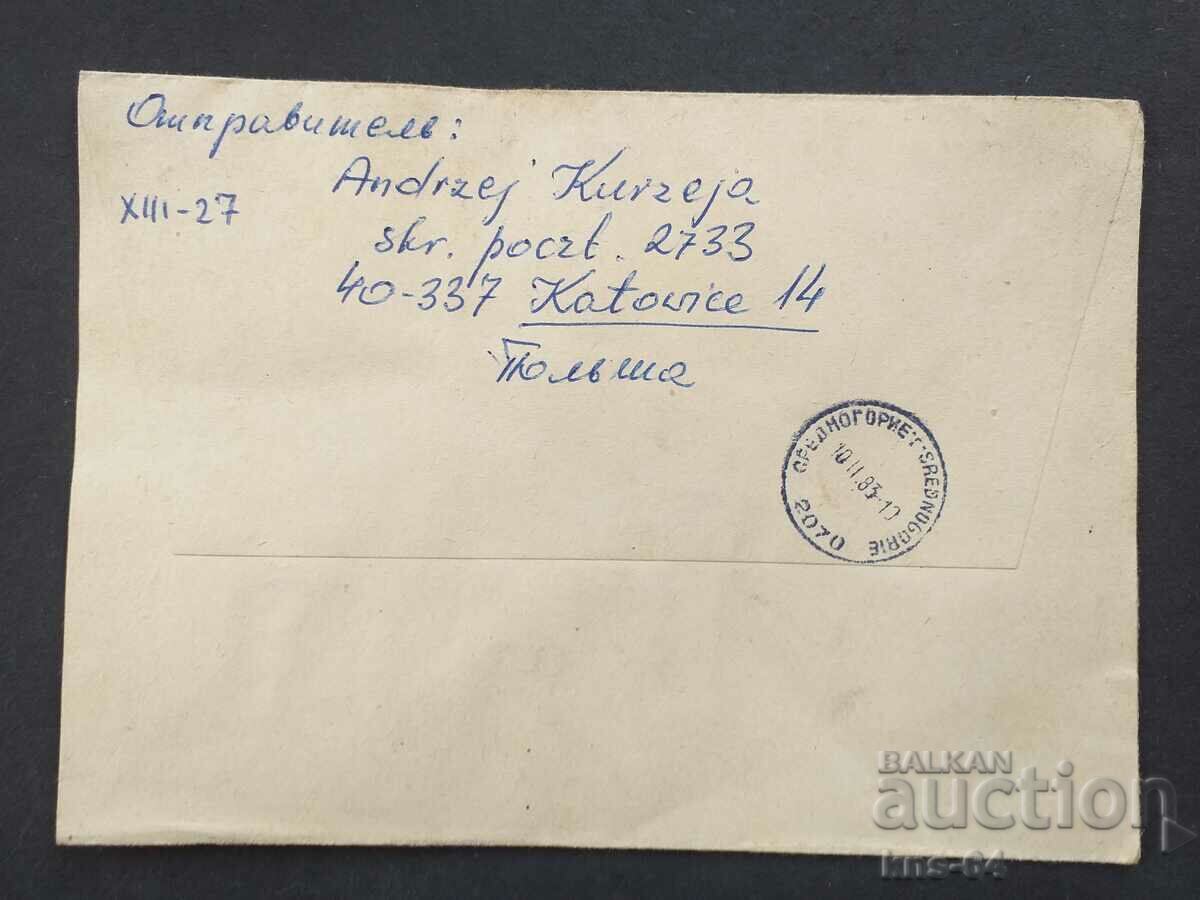 Отправитель:
Andrzej Kurzeja
XIII-27
skr. poczt. 2733
40-337 Katowice 14
Польша
СРЕДНОГОРИЕ · SREDNOGORIE
10.II.83-10
2070
BALKAN
auction
kns-64